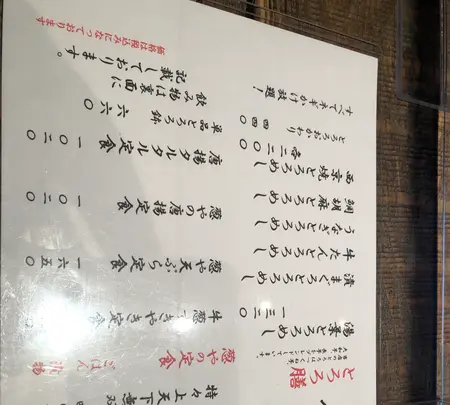 とろろ膳
湯葉とろろめし 一三二〇
漬まぐろとろろめし
牛たんとろろめし
うなぎとろろめし
西京焼とろろめし
各一三二〇
とろろおかわり 四四〇
すべてネギかけ放題!
葱やの定食
牛葱すきやき定食
葱や天ぷら定食 一六五〇
葱やの唐揚定食 一〇二〇
唐揚タルタル定食 一〇二〇
単品とろろ鉢 六六〇
飲み物は裏面に
記載しております。
価格は税込みになっております